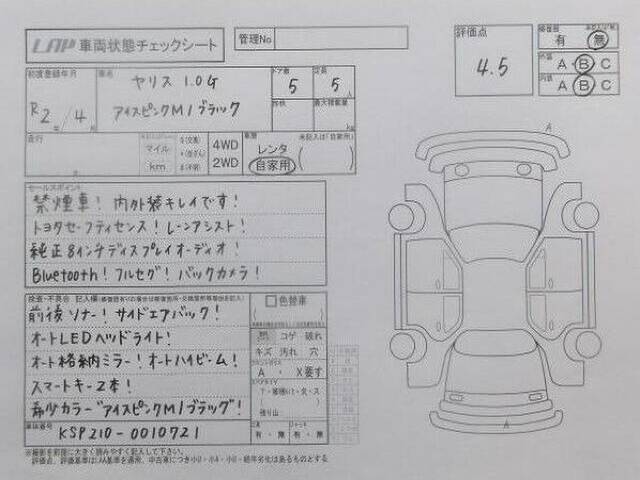 LAP 車両状態チェックシート
管理No
評価点
4.5
修復歴
有 無
外装
A・B C
内装
A B C
初度登録年月
R2年/4月
車名
ヤリス 1.0G
アイスピンクM/ブラック
ドア数
5
定員
5人
最大積載量
kg
走行
マイル
km
4WD
2WD
車歴
レンタ
自家用
未記入は「自家用」
セールスポイント
禁煙車! 内外装キレイです!
トヨタセーフティセンス! レーンアシスト!
純正8インチディスプレイオーディオ!
Bluetooth! フルセグ! バックカメラ!
検査・不具合 記入欄
色替車
前後ソナー! サイドエアバック!
オートLEDヘッドライト!
オート格納ミラー! オートハイビーム!
スマートキー2本!
希少カラー"アイスピンクM/ブラック!
コゲ 破れ
キズ 汚れ 穴
A ・ X要す
張り山
有・無 有・無
車体番号
KSP210-0010721
A
A
※撮影を前提に大きく読み易く記入して下さい。